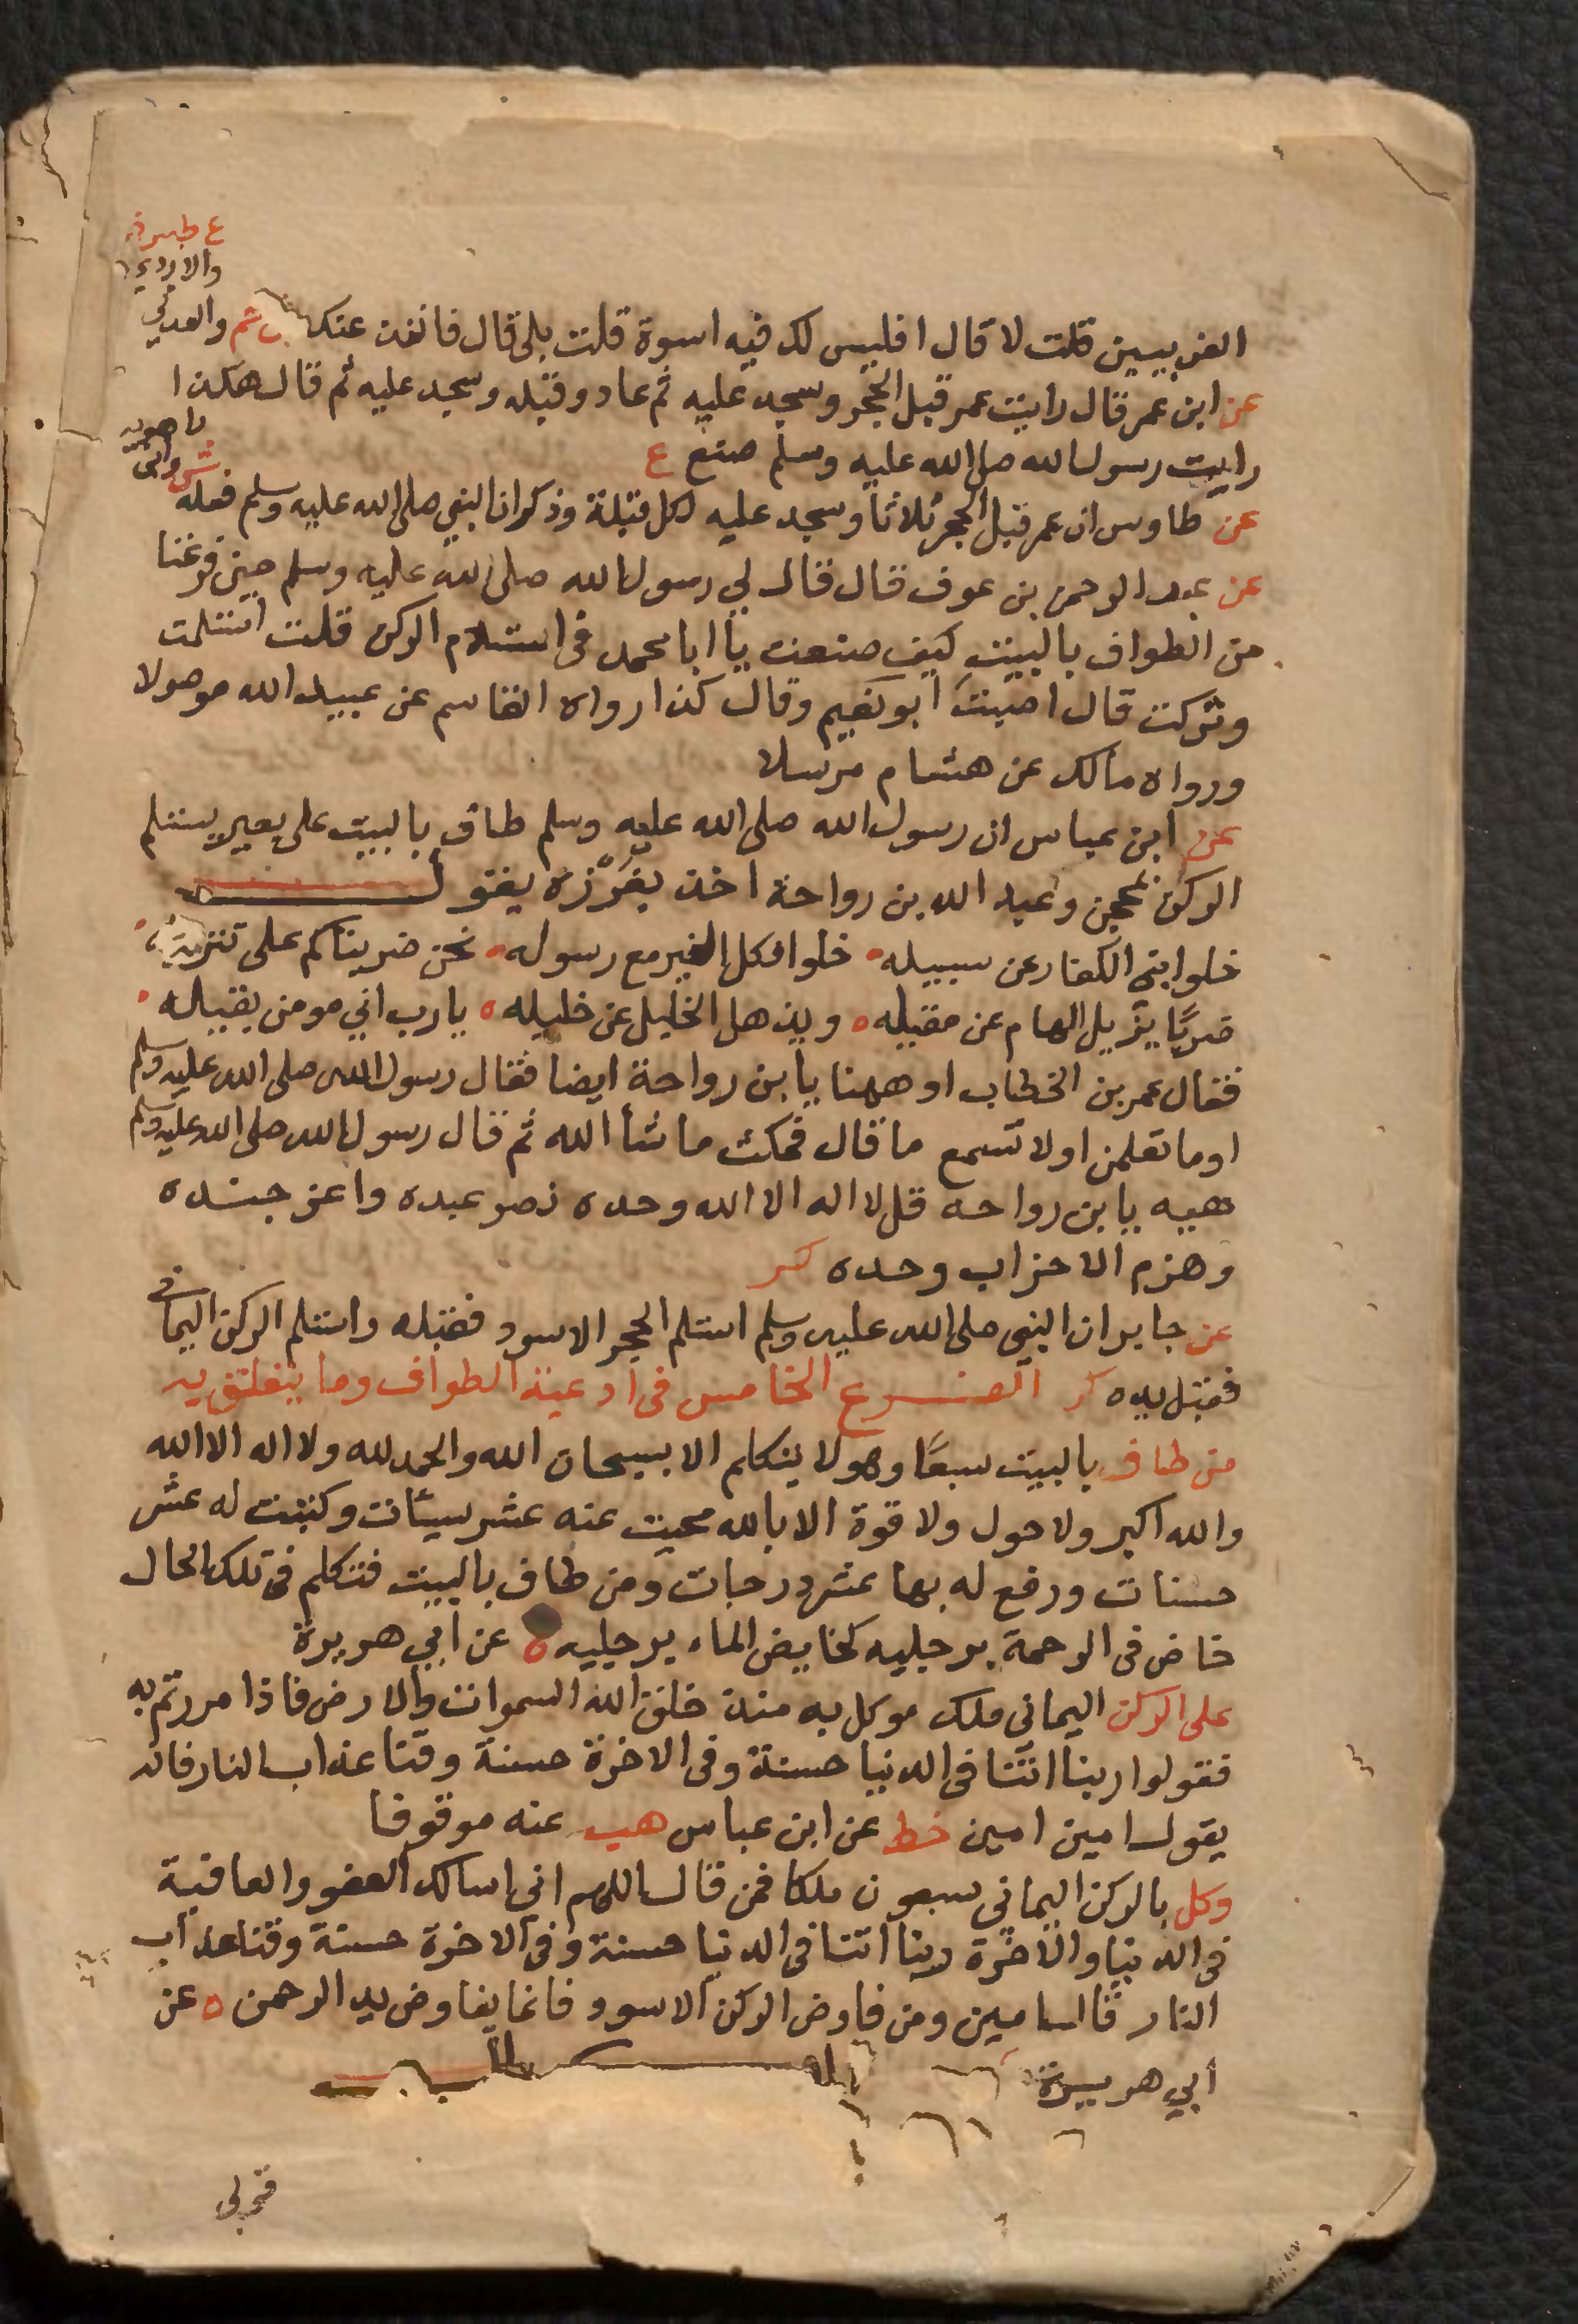 ع طب ق
والازدي
الغربيين قلت لا قال افليس لك فيه اسوة قلت بلى قال فانفذ عنك ش حم والعدني
عن ابن عمر قال رايت عمر قبل الحجر وسجد عليه ثم عاد وقبله وسجد عليه ثم قال هكذا
رايت رسول الله صلى الله عليه وسلم صنع ع
عن طاوس ان عمر قبل الحجر ثلاثا وسجد عليه لكل قبلة وذكر ان النبي صلى الله عليه وسلم فعله ش
عن عبد الرحمن بن عوف قال قال لي رسول الله صلى الله عليه وسلم حين فرغنا
من الطواف بالبيت كيف صنعت يا ابا محمد في استلام الركن قلت استلمت
وتركت قال اصبت ابو نعيم وقال كذا رواه القاسم عن عبيد الله موصولا
ورواه مالك عن هشام مرسلا
عن ابن عباس ان رسول الله صلى الله عليه وسلم طاف بالبيت على بعير يستلم
الركن بمحجن وعبد الله بن رواحة اخذ بغرزه يقول
خلوا بني الكفار عن سبيله خلوا فكل الخير مع رسوله نحن ضربناكم على تنزيله
ضربًا يزيل الهام عن مقيله ويذهل الخليل عن خليله يا رب اني مومن بقيله
فقال عمر بن الخطاب او ههنا يا بن رواحة ايضا فقال رسول الله صلى الله عليه وسلم
اوما تعلمن اولا تسمع ما قال فمكث ما شأ الله ثم قال رسول الله صلى الله عليه وسلم
هيه يا بن رواحه قل لا اله الا الله وحده نصر عبده واعز جنده
وهزم الاحزاب وحده كر
عن جابر ان النبي صلى الله عليه وسلم استلم الحجر الاسود فقبله واستلم الركن اليماني
فقبل يده كر الفرع الخامس في ادعية الطواف وما يتعلق به
من طاف بالبيت سبعًا وهو لا يتكلم الا بسبحان الله والحمد لله ولا اله الا الله
والله اكبر ولا حول ولا قوة الا بالله محيت عنه عشر سيئات وكتبت له عشر
حسنات ورفع له بها عشر درجات ومن طاف بالبيت فتكلم في تلك الحال
خاض في الرحمة برجليه كخايض الماء برجليه ه عن ابي هريرة
على الركن اليماني ملك موكل به منذ خلق الله السموات والارض فاذا مررتم به
فقولوا ربنا اتنا في الدنيا حسنة وفي الاخرة حسنة وقنا عذاب النار فانه
يقول امين امين خط عن ابن عباس هب عنه موقوفا
وكل بالركن اليماني سبعون ملكا فمن قال اللهم اني اسالك العفو والعافية
في الدنيا والاخرة ربنا اتنا في الدنيا حسنة وفي الاخرة حسنة وقنا عذاب
النار قالوا امين ومن فاوض الركن الاسود فانما يفاوض يد الرحمن ه عن
ابي هريرة